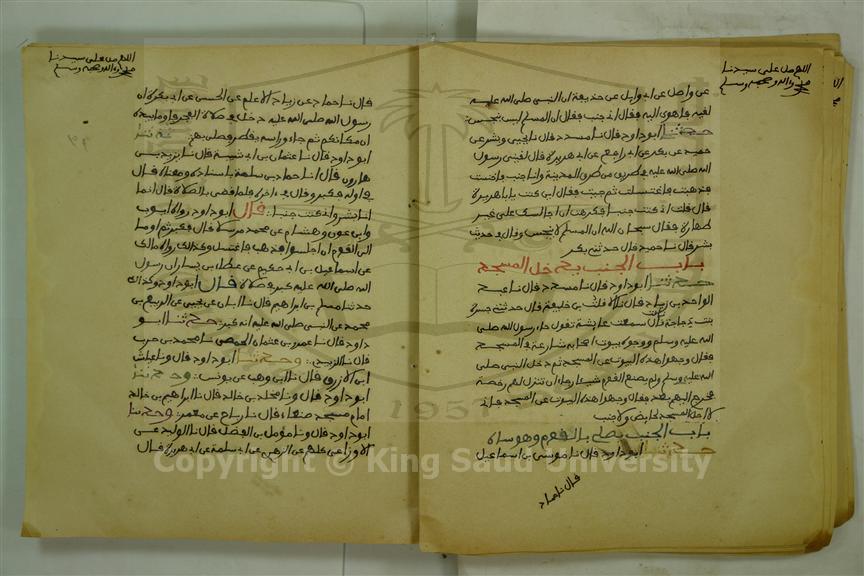 اللهم صل على سيدنا
محمد وآله وصحبه وسلم
عن واصل عن ابي وايل عن حذيفة ان النبي صلى الله عليه
لقيه فاهوى اليه فقال اني جنب فقال ان المسلم ليس بنجس
حدثنا ابو داود قال نا مسدد قال نا يحيى وبشر عن
حميد عن بكر عن ابي رافع عن ابي هريرة قال لقيني رسول
الله صلى الله عليه في طريق من طرق المدينة وانا جنب فاختنست
فذهبت فاغتسلت ثم جيت فقال اين كنت يا با هريرة
قال قلت اني كنت جنبا فكرهت ان اجالسك على غير
طهارة فقال سبحان الله ان المسلم لا ينجس وقال في حديث
بشر قال نا حميد قال حدثني بكر
باب الجنب يدخل المسجد
حدثنا ابو داود قال نا مسدد قال نا عبد
الواحد بن زياد قال نا الافلت بن خليفة قال حدثتني جسرة
بنت دجاجة قالت سمعت عايشة تقول جاء رسول الله صلى
الله عليه وسلم ووجوه بيوت اصحابه شارعة في المسجد
فقال وجهوا هذه البيوت عن المسجد ثم دخل النبي صلى
الله عليه وسلم ولم يصنع القوم شيئا رجاء ان تنزل لهم رخصة
فخرج اليهم بعد فقال وجهوا هذه البيوت عن المسجد فاني
لا احل المسجد لحايض ولا جنب
باب الجنب يصلي بالقوم وهو ساه
حدثنا ابو داود قال نا موسى بن اسماعيل
قال نا حماد
اللهم صل على سيدنا
محمد وآله وصحبه وسلم
قال نا حماد عن زياد الاعلم عن الحسن عن ابي بكرة ان
رسول الله صلى الله عليه دخل في صلاة الفجر فاوما بيده
ان مكانكم ثم جاء وراسه يقطر فصلى بهم حدثنا
ابو داود قال نا عثمان بن ابي شيبة قال نا يزيد بن
هارون قال انا حماد بن سلمة باسناده ومعناه قال
في اوله فكبر وقال في اخره فلما قضى الصلاة قال انما
انا بشر واني كنت جنبا قال ابو داود رواه ايوب
وابن عون وهشام عن محمد مرسلا قال فكبر ثم اوما
الى القوم ان اجلسوا فذهب فاغتسل وكذلك رواه مالك
عن اسماعيل بن ابي حكيم عن عطاء بن يسار ان رسول
الله صلى الله عليه كبر في صلاة قال ابو داود وكذلك
حدثنا مسلم بن ابراهيم قال نا ابان عن يحيى عن الربيع بن
محمد عن النبي صلى الله عليه انه كبر حدثنا ابو
داود قال نا عمرو بن عثمان الحمصي نا محمد بن حرب
قال نا الزبيدي وحدثنا ابو داود قال ونا عياش
ابن الازرق قال نا ابن وهب عن يونس وحدثنا
ابو داود قال ونا مخلد بن خالد قال نا ابراهيم بن خالد
امام مسجد صنعاء قال نا رباح عن معمر وحدثنا
ابو داود قال ونا مومل بن الفضل قال نا الوليد عن
الاوزاعي كلهم عن الزهري عن ابي سلمة عن ابي هريرة قال
1957
Copyright © King Saud University